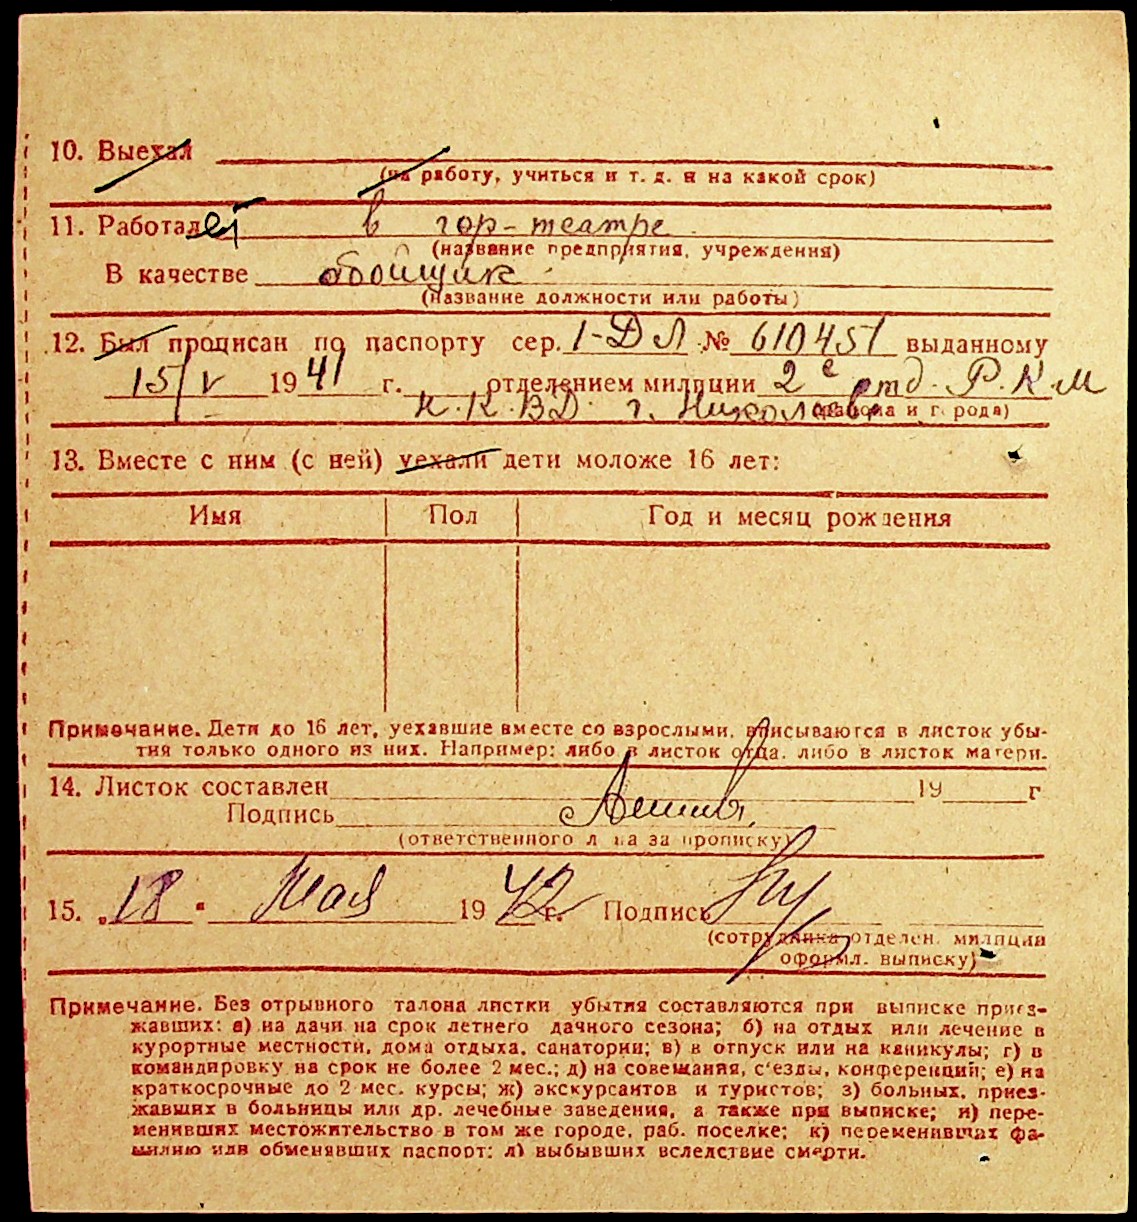 10. Выехал
(на работу, учиться и т. д. и на какой срок)
11. Работает в гор-театре
(название предприятия, учреждения)
В качестве обойщик
(название должности или работы)
12. Был прописан по паспорту сер. I-ДЛ № 610451 выданному
15/V 1941 г. отделением милиции 2е отд. Р.К.М
(района и города)
Н.К.ВД. г. Николаев
13. Вместе с ним (с ней) уехали дети моложе 16 лет:
Имя Пол Год и месяц рождения
Примечание. Дети до 16 лет, уехавшие вместе со взрослыми, вписываются в листок убы-
тия только одного из них. Например: либо в листок отца, либо в листок матери.
14. Листок составлен 19 г
Подпись
(ответственного лица за прописку)
15. „18" Мая 1942 г. Подпись
(сотрудника отделен. милиции
оформл. выписку)
Примечание. Без отрывного талона листки убытия составляются при выписке приез-
жавших: а) на дачи на срок летнего дачного сезона; б) на отдых или лечение в
курортные местности, дома отдыха, санатории; в) в отпуск или на каникулы; г) в
командировку на срок не более 2 мес.; д) на совещания, с'езды, конференции; е) на
краткосрочные до 2 мес. курсы; ж) экскурсантов и туристов; з) больных, приез-
жавших в больницы или др. лечебные заведения, а также при выписке; и) пере-
менивших местожительство в том же городе, раб. поселке; к) переменивших фа-
милию или обменявших паспорт; л) выбывших вследствие смерти.